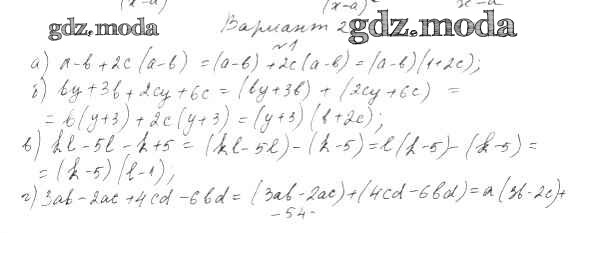 (x-a)
gdz.moda Вариант 2 gdz.moda
№1
а) a-b+2c(a-b) = (a-b)+2c(a-b) = (a-b)(1+2c);
б) by+3b+2cy+6c = (by+3b) + (2cy+6c) =
= b(y+3) + 2c(y+3) = (y+3)(b+2c);
в) kl-5l-k+5 = (kl-5l)-(k-5)=l(k-5)-(k-5) =
= (k-5)(l-1);
г) 3ab-2ac+4cd-6bd = (3ab-2ac)+(4cd-6bd)=a(3b-2c)+
-54-